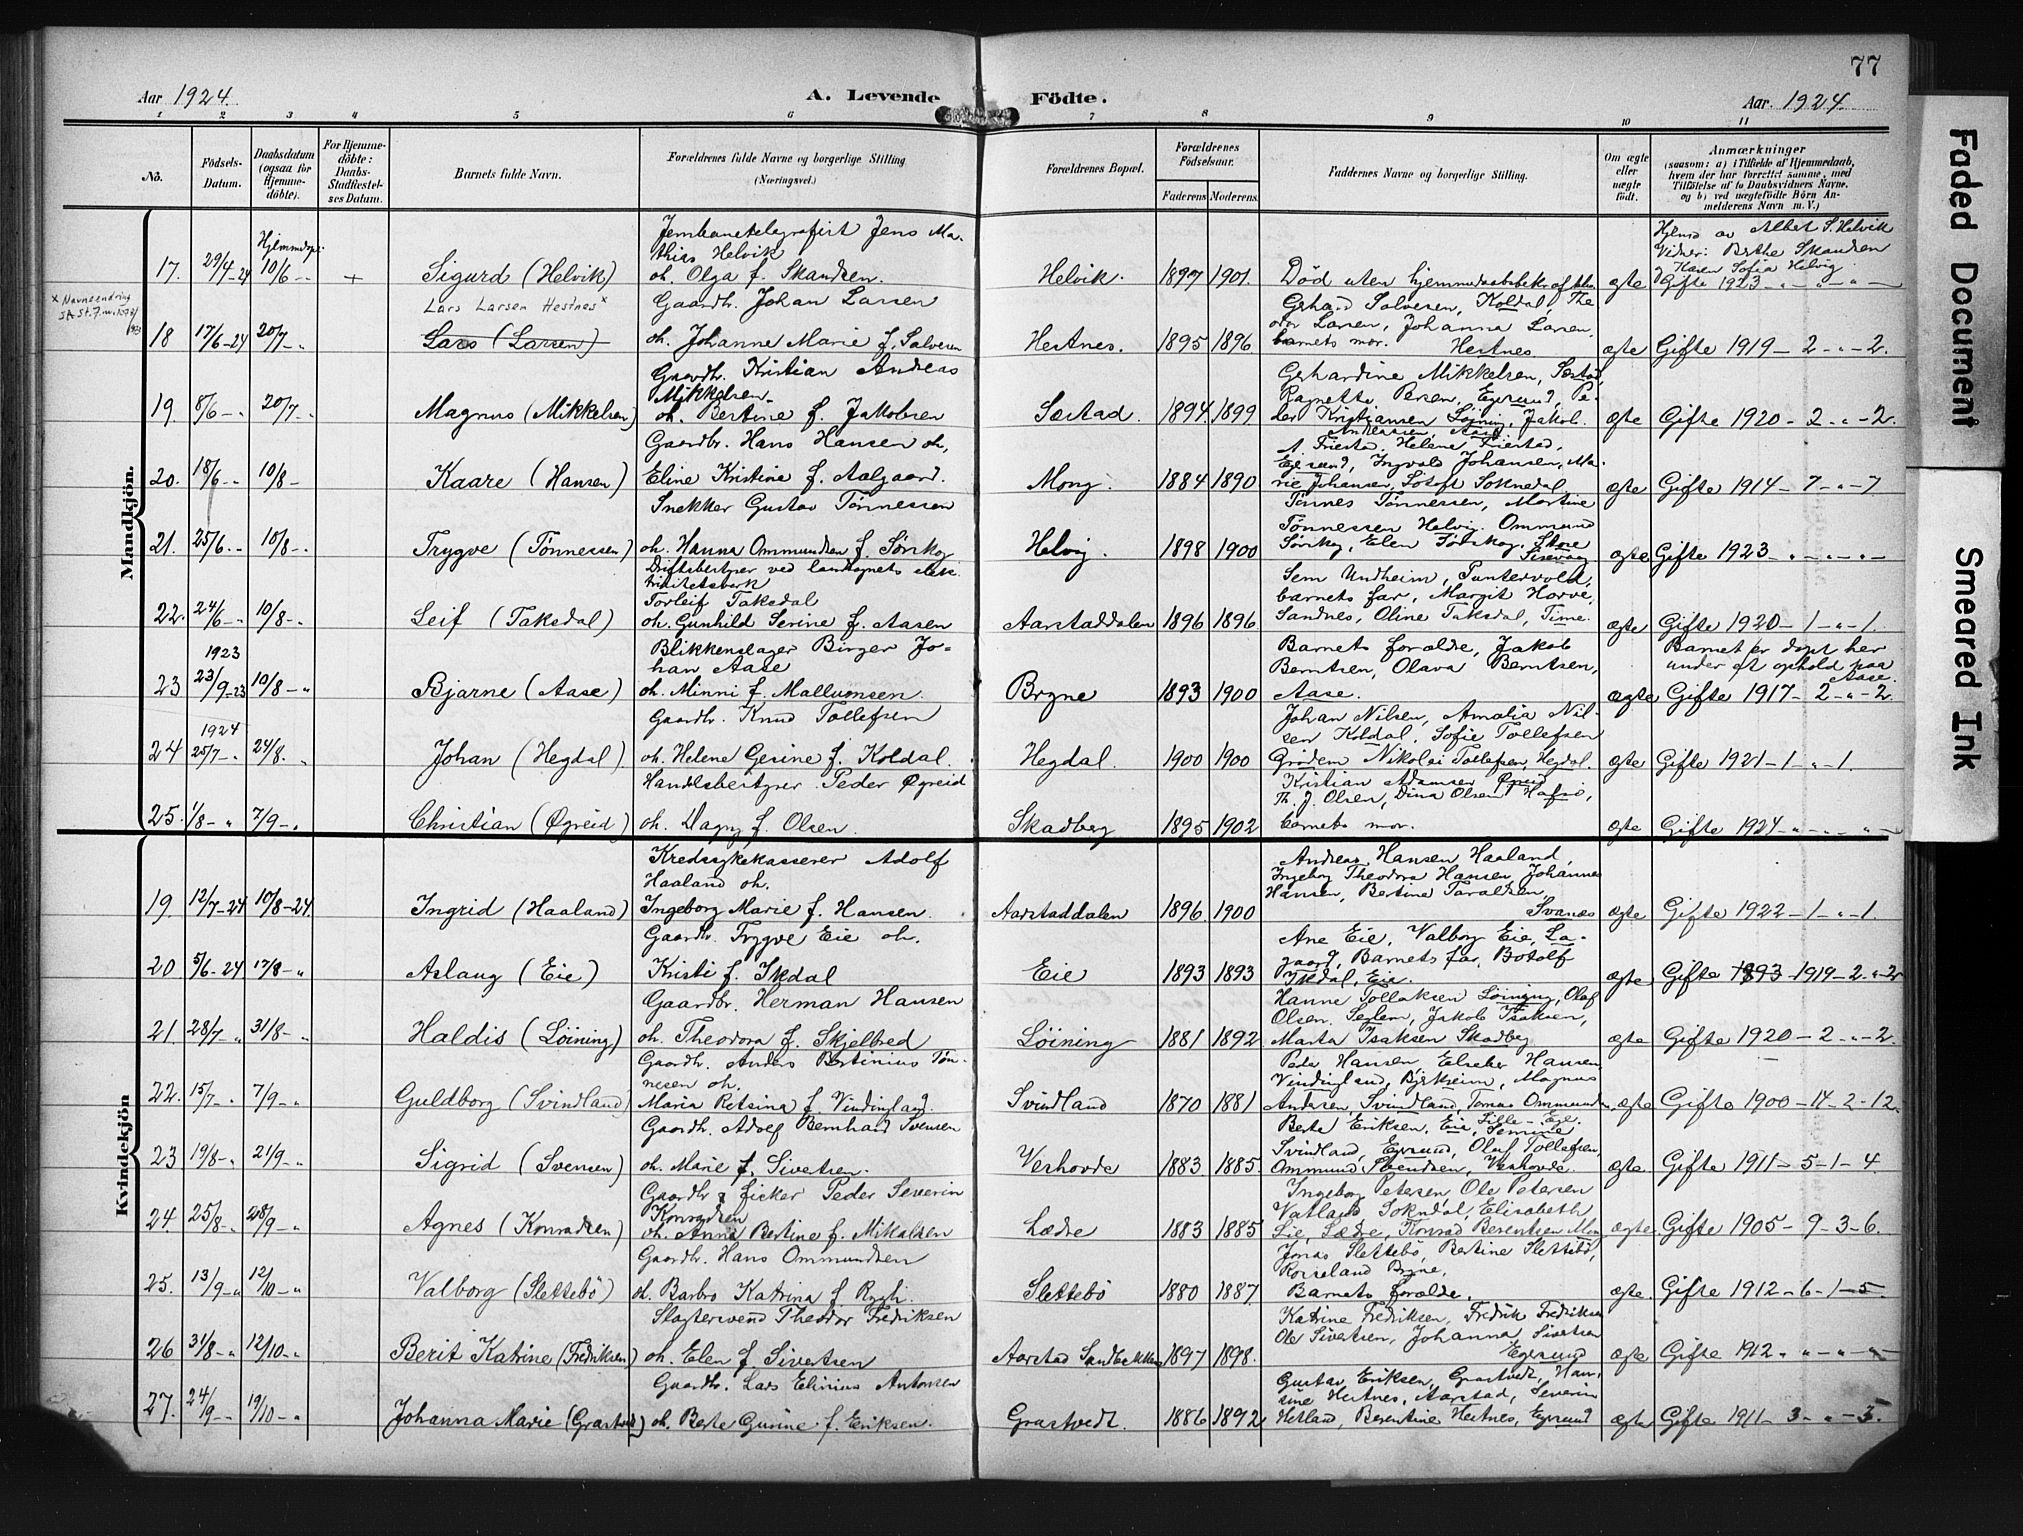 77
Aar 1924.
A. Levende Födte.
Aar. 1924.
1 2 3 4 5 6 7 8 9 10 11
No.
Födsels-Datum.
Daabsdatum (ogsaa for Hjemme-döbte).
For Hjemme-döbte: Daabs-Stadfæstel-ses Datum.
Barnets fulde Navn.
Forældrenes fulde Navne og borgerlige Stilling
(Næringsvei.)
Forældrenes Bopæl.
Forældrenes Födselsaar.
Faderens Moderens
Faddernes Navne og borgerlige Stilling.
Om ægte eller uægte födt.
Anmærkninger
(saasom: a) i Tilfælde af Hjemmedaab,
hvem der har forrettet samme, med
Tilföielse af to Daabsvidners Navne,
og b) ved uægtefödte Börn An-
melderens Navn m. V.)
Mandkjön.
17. 29/4-24 Hjemmedøpt 10/6 - " + Sigurd (Helvik)
Jernbanetelegrafist Jens Ma-
thias Helvik
oh. Olga f. Skaadsen.
Helvik. 1897 1901.
Død uten
ægte
Hjemd av Albet S. Helvik
Vidner: Berthe Skaadsen
Karen Sofia Helvig
Gifte 1923 - " - " - " -
x Navneendring
Lars Larsen Hestnes x
18 17/6-24 20/7 - " Lars (Larsen)
Gaardbr. Johan Larsen
oh. Johanne Marie f. Salvesen
Hestnes. 1895 1896
Gerhard Salvesen, Koldal, The
odor Larsen, Johanna Larsen,
barnets mor. Hestnes
ægte Gifte 1919 - 2 - " - 2.
19. 8/6 - " 20/7 - " Magnus (Mikkelsen)
Gaardbr. Kristian Andreas
Mikkelsen
oh. Bertine f. Jakobsen
Sæstad. 1894. 1899.
Gerhardine Mikkelsen, Sæstad,
Ragnette Persen, Egersund, Pe-
der Kristiansen Løining, Jakob.
Andreassen, Aase
ægte Gifte 1920 - 2 - " - 2.
20. 18/6 - " 10/8 - Kaare (Hansen)
Gaardbr. Hans Hansen oh,
Eline Kristine f. Aalgaard.
Mong. 1884 1890
A. Friestad, Helene Friestad,
Egersund, Ingvald Johansen, Ma-
rie Johansen, Sokndal
ægte Gifte 1914 - 7 - " - 7
21. 25/6. - 10/8 - " Trygve (Tønnessen)
Snekker Gustav Tønnessen
oh. Hanna Ommundsen f. Sørskog
Helvig. 1898 1900
Tønnes Tønnessen, Martine
Tønnessen Helvig. Ommund
Sørskog, Elen Sørskog. Store
ægte Gifte 1923 - " - " - " -
22. 24/6 - " 10/8 - " Leif (Taksdal)
Driftsbestyrer ved landsognets elek
tricitetsverk
Torleif Taksdal
oh. Gunhild Serine f. Aasen
Aarstaddalen 1896 1896
Sem Undheim, Puntervold,
barnets far, Margit Horve,
Sandnes, Oline Taksdal, Time.
ægte Gifte 1920 - 1 - " - 1.
1923
23 23/9-23 10/8 - " Bjarne (Aase)
Blikkenslager Birger Jo-
han Aase
oh. Minni f. Malluonsen.
Bryne 1893 1900
Barnets forælde, Jakob
Berntsen, Olava Berntsen,
Aase.
ægte
Barnet er døpt her
under et ophold paa
Aase.
Gifte 1917 - 2 - " - 2
1924
24 25/7 - " 24/8. " Johan (Hegdal)
Gaardbr. Knud Tollefsen
oh. Helene Gerine f. Koldal.
Hegdal. 1900 1900
Johan Nilsen, Amalia Nil-
sen Koldal, Sofie Tollefsen
Grødem Nikolai Tollefsen, Hegdal
ægte Gifte 1921 - 1 - " - 1.
25. 1/8 - " 7/9 - " Christian (Øgreid)
Handelsbestyrer Peder Øgreid
oh. Dagny f. Olsen.
Skadberg 1895 1902
Kristian Adamsen Øgreid
Th. J. Olsen, Dina Olsen, Hafsø,
barnets mor.
ægte Gifte 1924 - " - " - " -
Kvindekjön
19. 12/7-24 10/8-24. Ingrid (Haaland)
Kredssykekasserer Adolf
Haaland oh.
Ingeborg Marie f. Hansen.
Aarstaddalen 1896. 1900
Andreas Hansen Haaland,
Ingeborg Theodora Hansen, Johannes
Hansen, Bertine Taraldsen,
Svanæs
ægte Gifte 1922 - 1 - " - 1.
20 5/6-24 17/8 - " Aslaug (Eie)
Gaardbr. Trygve Eie oh.
Kristi f. Ikdal
Eie 1893 1893
Ane Eie, Valborg Eie, La-
gaard, Barnets far, Botolf
Ikdal, Eie.
ægte Gifte 1893 - 1919 - 2 - " - 2
21 28/7 - " 31/8 - " Haldis (Løining)
Gaardbr. Herman Hansen
oh. Theodora f. Skjelbred
Løining 1881 1892
Hanne Tollaksen Løining, Olaf
Olsen. Seglem, Jakob Isaksen,
Marta Isaksen Skadberg
ægte Gifte 1920 - 2 - " - 2.
22. 15/7 - " 7/9 - " Guldborg (Svindland)
Gaardbr. Anders Bertinius Tøn-
nesen oh.
Maria Retsina f. Vindingland.
Svindland 1870 1881
Peder Hansen, Elseber Hansen,
Vindingland, Bjerkreim, Magnus
Andersen, Svindland, Tomas Ommundsen,
ægte Gifte 1900 - 14 - 2 - 12.
23 19/8 - " 21/9 - " Sigrid (Svensen)
Gaardbr. Adolf Bernhard Svensen
oh. Marie f. Sivetsen.
Veshovde 1883. 1885
Berte Eriksen, Eie,
Svindland, Egersund, Olaf Tollefsen,
Ommund Svendsen, Veshovde.
ægte. Gifte 1911 - 5 - 1 - 4
24. 25/8 - " 28/9 - " Agnes (Konradsen)
Gaardbr & fisker Peder Severin
Konradsen
oh. Anna Bertine f. Mikalsen
Lædre 1883 1885
Ingeborg Petersen, Ole Petersen
Vatland Sokndal, Elisabeth
Lie, Lædre, Konrad Berentsen
ægte. Gifte 1905 - 9 - 3 - 6.
25. 13/9 - " 12/10 - " Valborg (Slettebø)
Gaardbr. Hans Ommundsen
oh. Barbro Katrina f Rygh.
Slettebø 1880 1887.
Jonas Slettebø, Bertine Slettebø,
Roiseland Bryne,
Barnets forælde.
ægte. Gifte 1912 - 6 - 1 - 5.
26 31/8 - " 12/10 - " Berit Katrine (Fredriksen)
Slagtersvend Theodor Fredriksen
oh. Elen f. Sivertsen
Aarstad Sandbekken 1897 1898.
Katrine Fredriksen, Fredrik Fredriksen
Ole Sivertsen, Johanna Sivertsen
Egersund
ægte Gifte 1912 " - " - " -
27. 24/9 - " 19/10 - " Johanna Marie (Grastvedt)
Gaardbr. Lars Elinius Antonsen
oh. Berte Gurine f. Eriksen.
Grastvedt. 1886 1892
Gustav Eriksen, Grastvedt, Han-
sine Hestnes, Aarstad, Severin
Hetland, Berentine Hestnes, Egersund
ægte Gifte 1911 - 3 - " - 3.
Faded Document
Smeared Ink